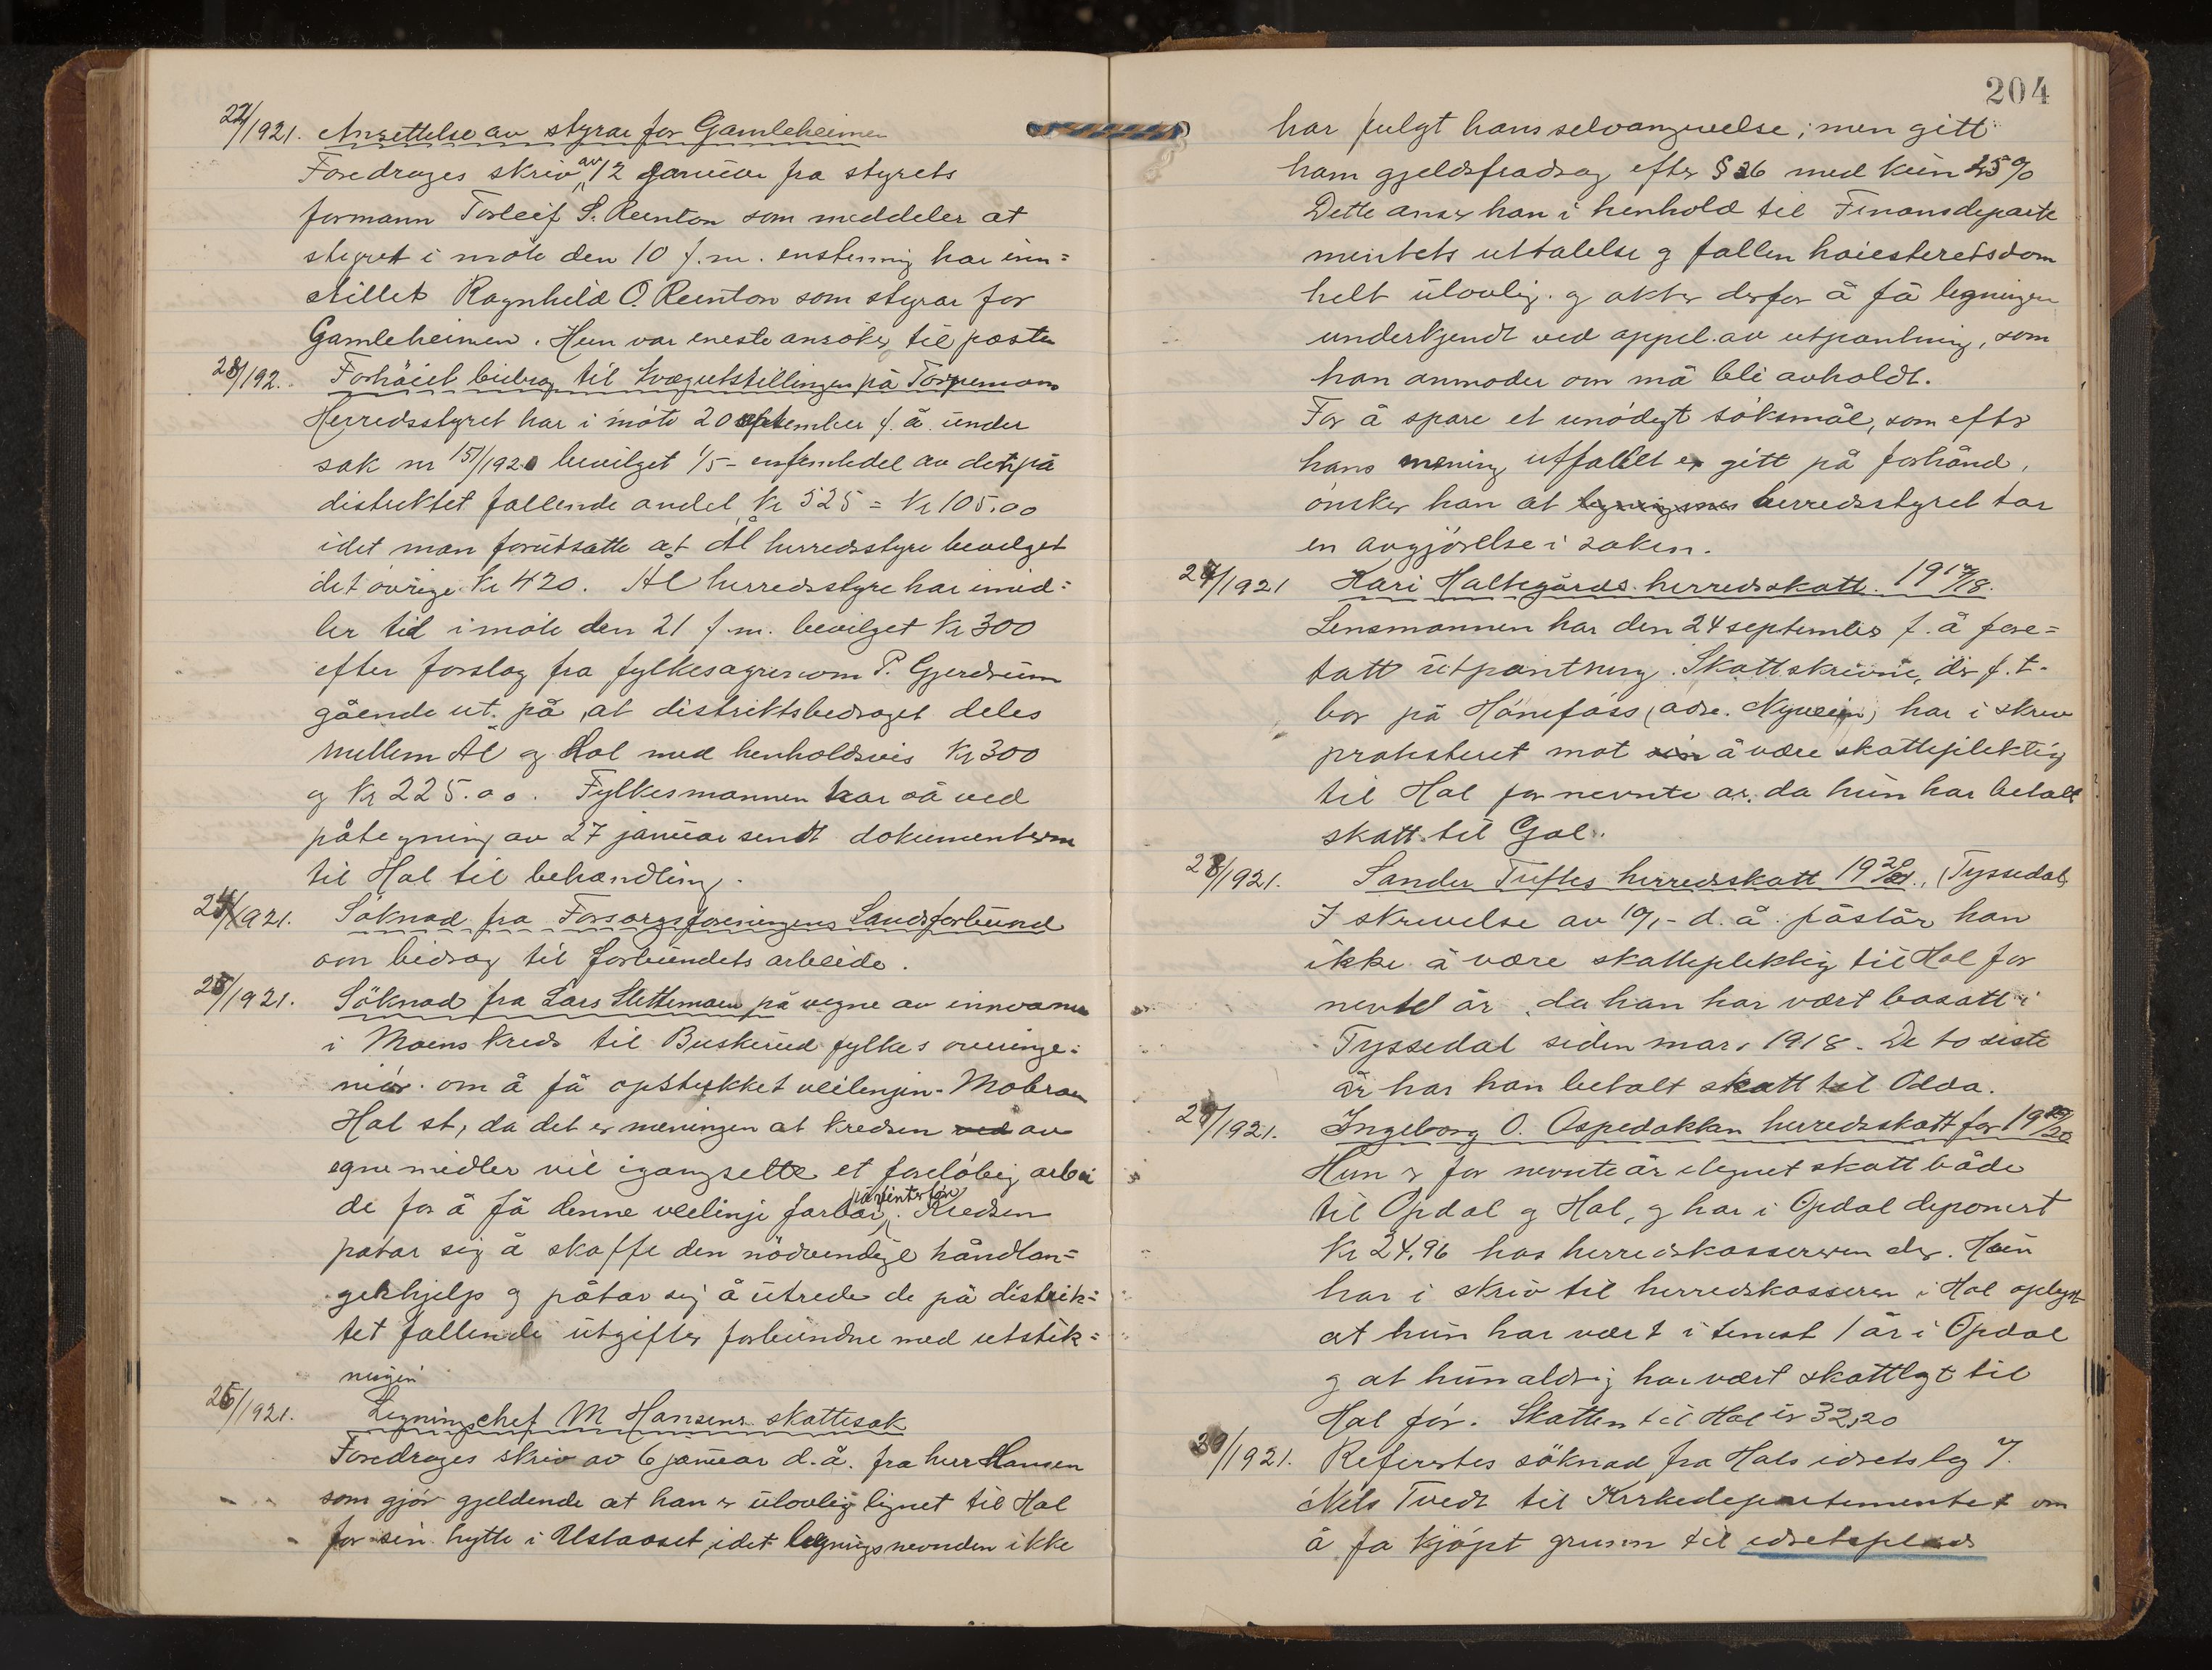 22/1921. Ansettelse av styrar for Gamleheimen
Foredrages skriv av 12 januar fra styrets
formann Torleif S. Reinton som meddeler at
styret i møte den 10 f.m. enstemmig har inn=
stillet Ragnhild O. Reinton som styrar for
Gamleheimen. Hun var eneste ansøker til posten
23/192. Forhøiet bidrag til kvægutstillingen på Torpemoen
Herredsstyret har i møte 20 september f.å. under
sak nr 151/1920 bevilget 1/5 - enfemtedel av det på
distriktet fallende andel kr 525 = kr 105.00
idet man forutsatte at Ål herredsstyre bevilget
det øvrige kr 420. Ål herredsstyre har imid=
ler tid i møte den 21 f.m. bevilget kr 300
efter forslag fra fylkesagronom P. Gjerdrum
gående ut på, at distriktsbedraget deles
mellem Ål og Hol med henholdsvis kr 300
og kr 225.00. Fylkesmannen har så ved
påtegning av 27 januar sendt dokumenterne
til Hol til behandling.
24/1921. Søknad fra Forsorgsforeningens Landsforbund
om bidrag til forbundets arbeide.
25/1921. Søknad fra Lars Slettemoen på vegne av innvånere
i Moens kreds til Buskerud fylkes overinge=
niør om å få opstukket veilinjen - Mobroen
Hol st, da det er meningen at kredsen ved av
egne midler vil igangsette et foreløbig arbei
de for å få denne veilinje farbar på vinterføre. Kredsen
påtar sig å skaffe den nødvendige håndlan=
gerhjelp og påtar sig å utrede de på distrik=
tet fallende utgifter forbundne med utstik=
ningen
26/1921. Ligningschef M Hansens skattesak
Foredrages skriv av 6 januar d.å. fra herr Hansen
som gjør gjeldende at han er ulovlig lignet til Hol
for sin hytte i Ustaoset, idet ligningsnevnden ikke
204
har fulgt hans selvangivelse; men gitt
ham gjeldsfradrag efter § 26 med kun 25%
Dette anser han i henhold til Finansdeparte
mentets uttalelse og fallen høiesteretsdom
helt ulovlig. og akter derfor å få ligningen
underkjendt ved appel av utpantning, som
han anmoder om må bli avholdt.
For å spare et unødigt søksmål, som efter
hans mening utfallet er gitt på forhånd,
ønsker han at herredsstyret tar
en avgjørelse i saken.
27/1921 Kari Haltegårds herredsskatt 1917/18.
Lensmannen har den 24 september f.å fore=
tatt utpantning. Skattskriv der f.t.
bor på Hønefoss (adr. Nyveien) har i skriv
protesteret mot sin å være skattepliktig
til Hol for nevnte år, da hun har betalt
skatt til Gol.
28/1921. Sander Tuftes herredsskatt 1920/21., (Tyssedal)
I skrivelse av 19/1- d.å. påstår han
ikke å være skattepliktig til Hol for
nevnte år, da han har vært bosatt i
Tyssedal siden mars 1918. De to siste
år har han betalt skatt til Odda.
29/1921. Ingeborg O. Ospedokken herredsskatt for 1919/20
Hun er for nevnte år ilignet skatt både
til Opdal og Hol, og har i Opdal deponert
kr 24.96 hos herredskassereren der. Hun
har i skriv til herredskassereren i Hol oplyst
at hun har vært i tenest 1 år i Opdal
og at hun aldrig har vært skattlagt til
Hol før. Skatten til Hol er 32,20
30/1921. Refereres søknad fra Hols idretslag v.
Nils Tvedt til Kirkedepartementet om
å få kjøpt grunn til idretsplads